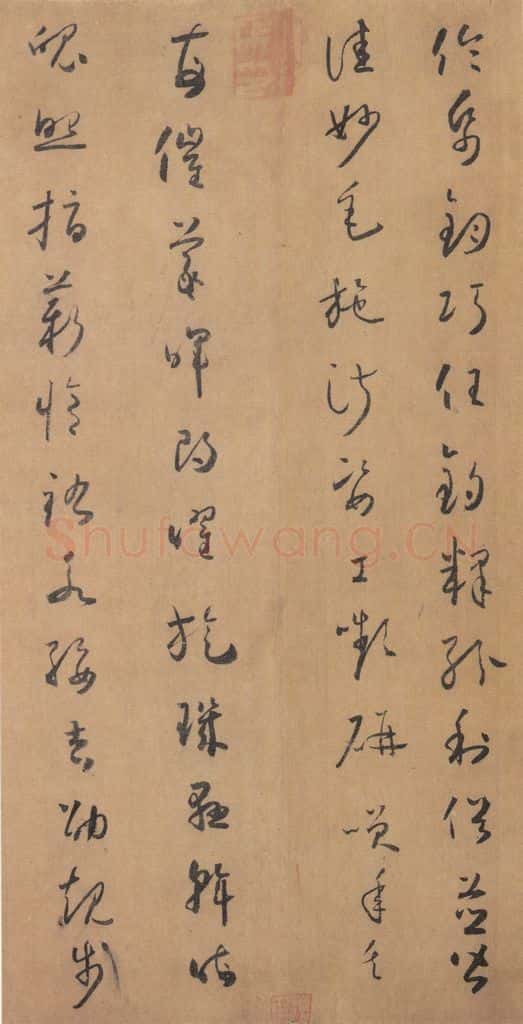 倫帋鈞巧任釣釋紛利俗並皆
佳妙毛施淑姿工嚬妍咲年矢
每催羲暉朗曜旋璣懸斡晦
魄照指薪脩祜永綏吉劭矩步
Shufawang.CN